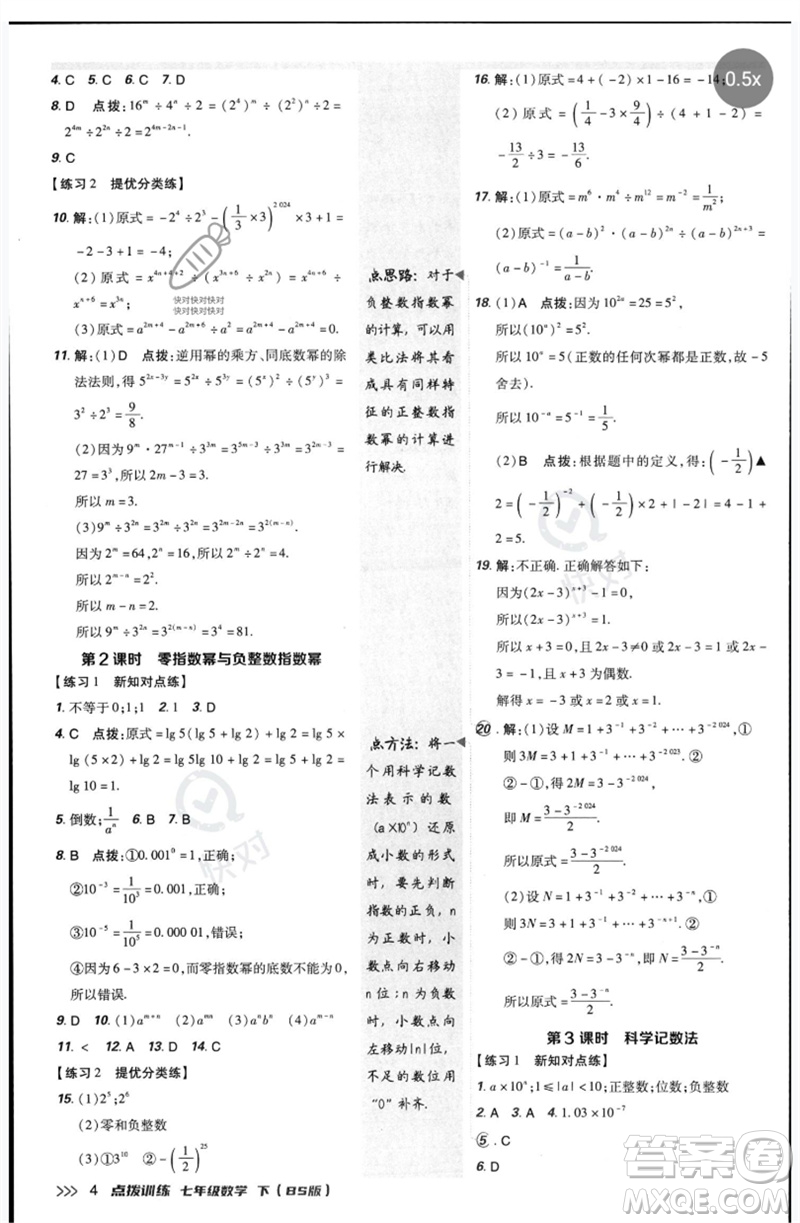 4. C 5. C 6. C 7. D
8. D 点拨:16^m÷4^n÷2=(2^4)^m÷(2^2)^n÷2=
2^{4m}÷2^{2n}÷2=2^{4m-2n-1}.
9. C
【练习2 提优分类练】
10. 解:(1)原式=-2^4÷2^3-(1/3×3)^{2 024}×3+1=
-2-3+1=-4;
(2)原式=x^{4n+4+2}÷x^{3n+6}=x^{4n+6}÷x^{3n+6}=x^n
(3)原式=a^{2m+4}÷a^6·a^6-a^{2m+4}=0.
11. 解:(1)D 点拨:逆用幂的乘方、同底数幂的除
法法则,得5^{2x-3y}=5^{2x}÷5^{3y}=(5^x)^2÷(5^y)^3=
3^2÷2^3=9/8.
(2)因为9^m·27^{m-1}÷3^{3m}=3^{2m}·3^{3m-3}÷3^{3m}=
27=3^3,
所以m=3.
(3)9^m÷3^{2n}=3^{2m}÷3^{2n}=3^{2m-2n}=3^{2(m-n)}.
因为2^m=64,2^n=16,所以2^m÷2^n=64÷16=4.
所以2^{m-n}=4=2^2.所以m-n=2.
所以9^m÷3^{2n}=3^{2(m-n)}=3^4=81.
第2课时 零指数幂与负整数指数幂
【练习1 新知对点练】
1. 不等于0;1;1 2. 1 3. D
4. C 点拨:原式=lg 5(lg 5+lg 2)+lg 2=lg 5×
lg(5×2)+lg 2=lg 5×lg 10+lg 2=lg 5+lg 2=
lg 10=1.
5. 倒数;1/a^n 6. B 7. B
8. B 点拨:①0.001^0=1,正确;
②10^{-3}=1/10^3=0.001,正确;
③10^{-5}=1/10^5=0.000 01,错误;
④因为6-3×2=0,而零指数幂的底数不能为0,
所以错误.
9. D 10. (1)a^{m+n} (2)a^nb^n (3)a^{mn}
11. < 12. A 13. D 14. C
【练习2 提优分类练】
15. (1)2^5;2^6
(2)零和负整数
(3)3^{10} ②-(1/2)^{25}
点思路:对于
负整数指数幂
的计算,可以用
类比法将其看
成具有同样特
征的正整数指
数幂的计算进
行解决.
点方法:将一
个用科学记数
法表示的数
(a×10^n)还原
成小数的形式
时,要先判断
指数的正负,n
为正数时,小
数点向右移动
n位;n为负数
时,小数点向
左移动|n|位,
不足的数位用
“0”补齐.
16. 解:(1)原式=4+(-2)×1-16=-14;
(2)原式=(1/4-3×9/4)÷(4+1-2)=
-13/2÷3=-13/6.
17. 解:(1)原式=m^6·m^4÷m^{12}=m^{-2}=1/m^2;
(2)原式=(a-b)^2·(a-b)^{2n}÷(a-b)^{2n+3}=
(a-b)^{-1}=1/(a-b).
18. (1)A 点拨:因为10^{2a}=25=5^2,
所以(10^a)^2=5^2.
所以10^a=5(正数的任何次幂都是正数,故-5
舍去).
所以10^{-a}=5^{-1}=1/5.
(2)B 点拨:根据题中的定义,得:(-1/2)▲
2=(-1/2)^{-2}+(-1/2)×2+|-2|=4-1+
2=5.
19. 解:不正确.正确解答如下:
因为(2x-3)^{x+3}-1=0,
所以(2x-3)^{x+3}=1.
所以x+3=0,且2x-3≠0或2x-3=1或
2x-3=-1,且x+3为偶数.
解得x=-3或x=2或x=1.
20. 解:(1)设M=1+3^{-1}+3^{-2}+…+3^{-2 024},①
则3M=3+1+3^{-1}+…+3^{-2 023}.②
②-①,得2M=3-3^{-2 024},
即M=(3-3^{-2 024})/2.
所以原式=(3-3^{-2 024})/2.
(2)设N=1+3^{-1}+3^{-2}+…+3^{-n},①
则3N=3+1+3^{-1}+…+3^{-n+1},②
②-①,得2N=3-3^{-n},即N=(3-3^{-n})/2.
所以原式=(3-3^{-n})/2.
第3课时 科学记数法
【练习1 新知对点练】
1. a×10^n;1≤|a|<10;正整数;位数;负整数
2. A 3. A 4. 1.03×10^{-7}
5. C
6. D
>>> 4 点拨训练 七年级数学 下(BS版)
0.5x
快对快对快对
快对快对快对
快对
快对
精灵